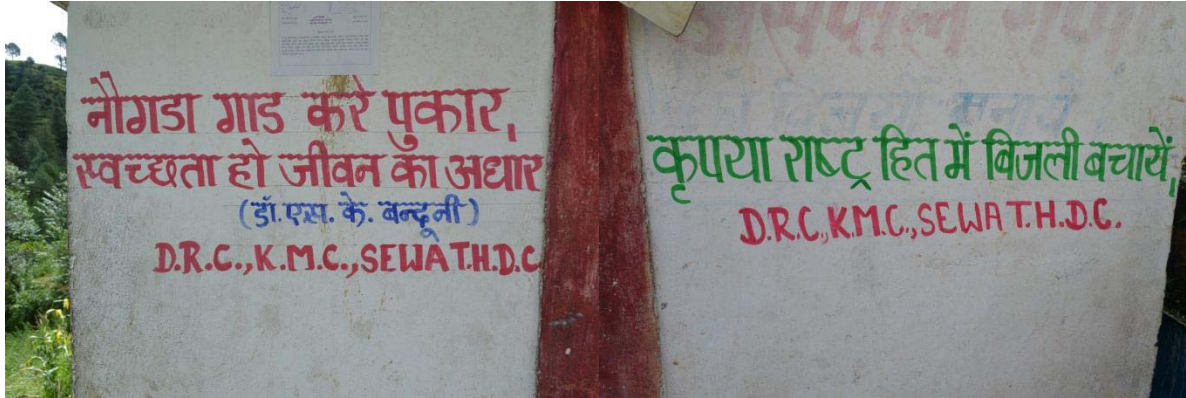 नौगडा गाड करे पुकार,
स्वच्छता हो जीवन का अधार
(डॉ. एस. के. बन्दूनी)
D.R.C.,K.M.C.,SEWA T.H.D.C
कृपया राष्ट्र हित में बिजली बचायें,
D.R.C.,K.M.C.,SEWA T.H.D.C.